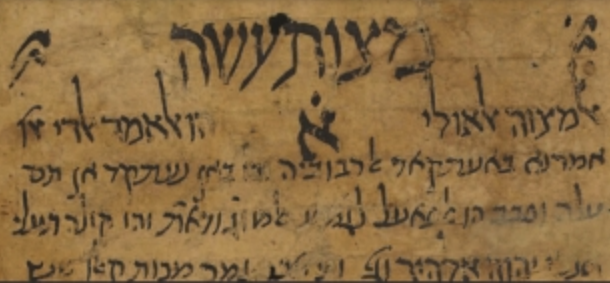 מצות עשה
אלמצוה אלאולי א הו אלאמר אלדי
אמרנא באעתקאד אלרבוביה והו באן נעתקד אן תם
עלה וסבב הו אלפאעל לגמיע אלמוגודאת והו קולה תעלי
אנכי יהוה אלהיך גמר מכות קאלו שש